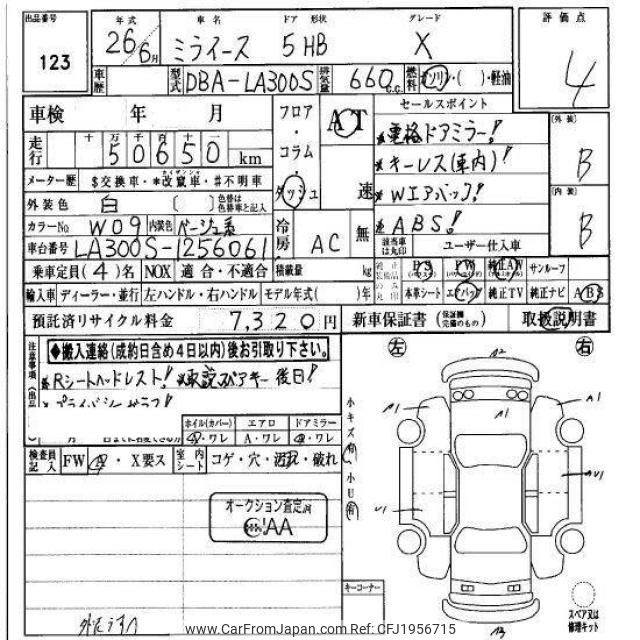 出品番号
123
年式 車名 ドア 形状 グレード
26年6月 ミライース 5HB X
評価点
4
車歴 型式 DBA-LA300S 排気量 660 c.c. 燃料 ガソリン・( )・軽油
車検 年 月
走行 十 万 千 百 十 一
50650 km
メーター歴 $交換車・*改竄車・#不明車
外装色 白 ( ) 色替は色替車と記入
カラーNo W09 内装色 ベージュ系
車台番号 LA300S-1256061
フロア・コラム・ダッシュ
AT
速
冷房 AC 無
セールスポイント
*電格ドアミラー!
*キーレス(車内)!
*WエアバッグI!
*ABS!
該当車は丸印 ユーザー仕入車
[外装]
B
[内装]
B
乗車定員(4)名 NOX 適合・不適合 積載量 kg
純正 PS PW 純正AW サンルーフ
輸入車 ディーラー・並行 左ハンドル・右ハンドル モデル年式( )年
本革シート エアバッグ 純正TV 純正ナビ ABS
預託済リサイクル料金 7,320円 新車保証書(保証欄完備のもの) 取扱説明書
注意事項
◆搬入連絡(成約日含め4日以内)後お引取り下さい。
*Rシートヘッドレスト! *取説スペアキー後日!
ホイル(カバー) エアロ ドアミラー
A・ワレ A・ワレ A・ワレ
検査員記入 FW A・X要ス 室内シート コゲ・穴・汚れ・破れ
オークション査定済
AA
小キズ有、小U有
左 右
A2
A1 A1 A1
AU1
U1
A3
キーコーナー
スペア又は修理キット
www.CarFromJapan.com Ref: CFJ1956715